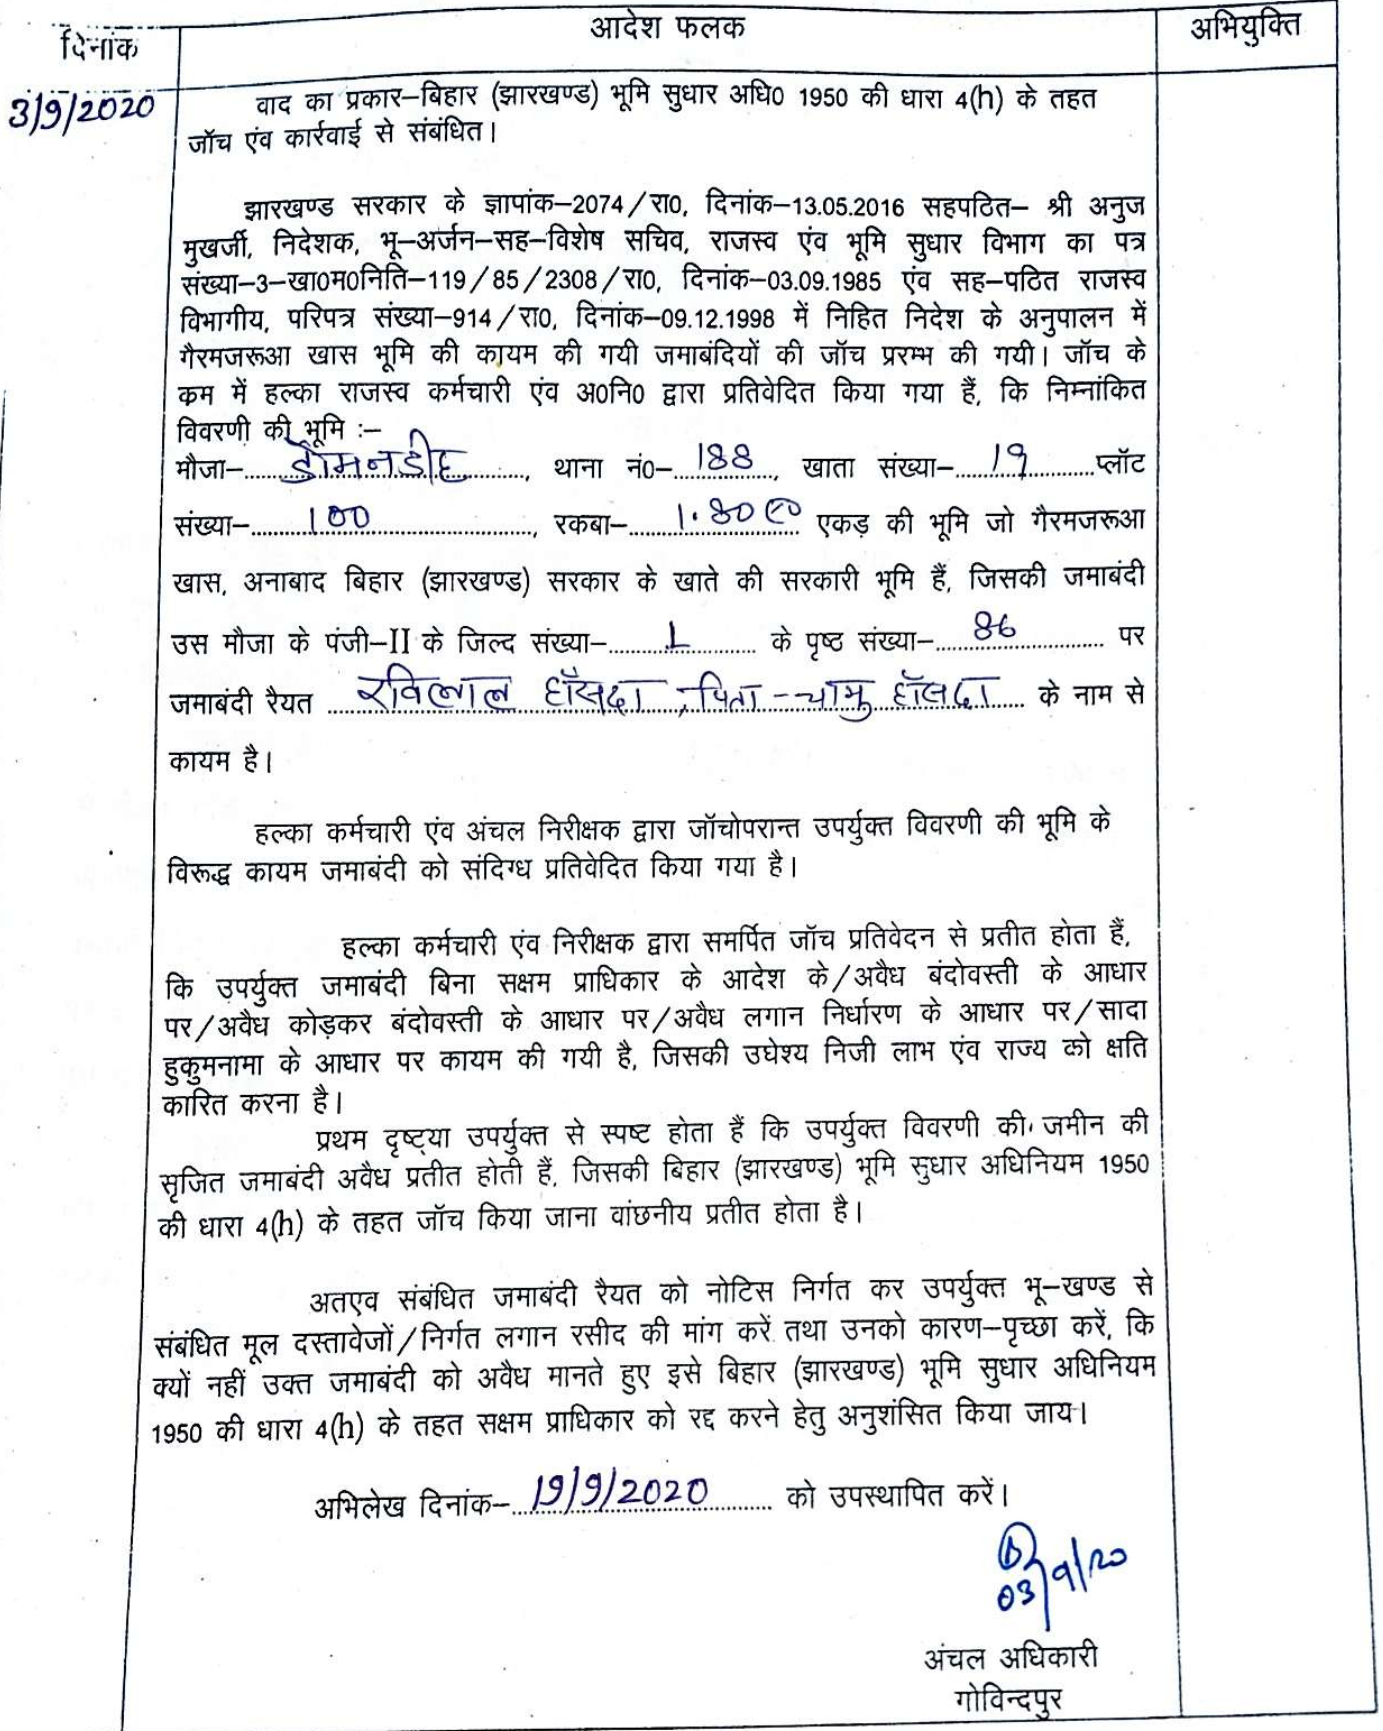 दिनांक
आदेश फलक
अभियुक्ति
3/9/2020
वाद का प्रकार–बिहार (झारखण्ड) भूमि सुधार अधि0 1950 की धारा 4(h) के तहत
जॉच एंव कार्रवाई से संबंधित।
झारखण्ड सरकार के ज्ञापांक–2074/रा0, दिनांक–13.05.2016 सहपठित– श्री अनुज
मुखर्जी, निदेशक, भू–अर्जन–सह–विशेष सचिव, राजस्व एंव भूमि सुधार विभाग का पत्र
संख्या–3–खा0म0निति–119/85/2308/रा0, दिनांक–03.09.1985 एंव सह–पठित राजस्व
विभागीय, परिपत्र संख्या–914/रा0, दिनांक–09.12.1998 में निहित निदेश के अनुपालन में
गैरमजरूआ खास भूमि की कायम की गयी जमाबंदियों की जॉच प्ररम्भ की गयी। जॉच के
कम में हल्का राजस्व कर्मचारी एंव अ0नि0 द्वारा प्रतिवेदित किया गया हैं, कि निम्नांकित
विवरणी की भूमि :–
मौजा–डोमनडीह, थाना नं0–188, खाता संख्या–19 प्लॉट
संख्या–100, रकबा–1.80 एकड़ की भूमि जो गैरमजरूआ
खास, अनाबाद बिहार (झारखण्ड) सरकार के खाते की सरकारी भूमि हैं, जिसकी जमाबंदी
उस मौजा के पंजी–II के जिल्द संख्या–1 के पृष्ठ संख्या–86 पर
जमाबंदी रैयत रविलाल हॉसदा, पिता–चामु हॉसदा के नाम से
कायम है।
हल्का कर्मचारी एंव अंचल निरीक्षक द्वारा जॉचोपरान्त उपर्युक्त विवरणी की भूमि के
विरूद्ध कायम जमाबंदी को संदिग्ध प्रतिवेदित किया गया है।
हल्का कर्मचारी एंव निरीक्षक द्वारा समर्पित जॉच प्रतिवेदन से प्रतीत होता हैं,
कि उपर्युक्त जमाबंदी बिना सक्षम प्राधिकार के आदेश के/अवैध बंदोवस्ती के आधार
पर/अवैध कोड़कर बंदोवस्ती के आधार पर/अवैध लगान निर्धारण के आधार पर/सादा
हुकुमनामा के आधार पर कायम की गयी है, जिसकी उघेश्य निजी लाभ एंव राज्य को क्षति
कारित करना है।
प्रथम दृष्ट्या उपर्युक्त से स्पष्ट होता हैं कि उपर्युक्त विवरणी की जमीन की
सृजित जमाबंदी अवैध प्रतीत होती हैं, जिसकी बिहार (झारखण्ड) भूमि सुधार अधिनियम 1950
की धारा 4(h) के तहत जॉच किया जाना वांछनीय प्रतीत होता है।
अतएव संबंधित जमाबंदी रैयत को नोटिस निर्गत कर उपर्युक्त भू–खण्ड से
संबंधित मूल दस्तावेजों/निर्गत लगान रसीद की मांग करें तथा उनको कारण–पृच्छा करें, कि
क्यों नहीं उक्त जमाबंदी को अवैध मानते हुए इसे बिहार (झारखण्ड) भूमि सुधार अधिनियम
1950 की धारा 4(h) के तहत सक्षम प्राधिकार को रद्द करने हेतु अनुशंसित किया जाय।
अभिलेख दिनांक–19/9/2020 को उपस्थापित करें।
03/9/20
अंचल अधिकारी
गोविन्दपुर